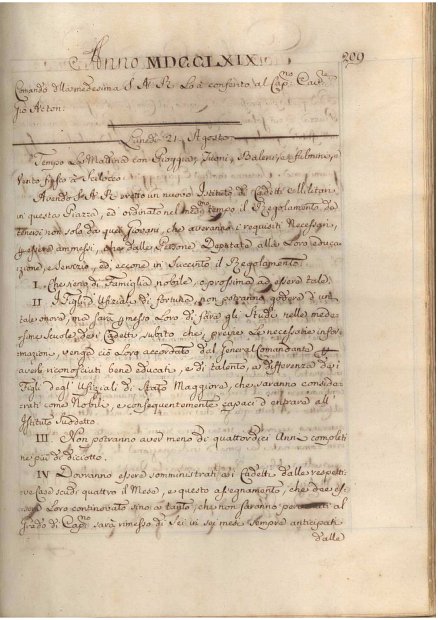 Anno MDCCLXIX
209
Comando della medesima S. A. R. lo à conferito al Cap:no Cav:re
Gio Acton:
Lunedì 21. Agosto
Tempo La Mattina con Pioggia, Tuoni, Baleni, e fulmine,
vento fisso a Scilocco
Avendo S. A. R. eretto un nuovo Istituto di Cadetti Militari
in questa Piazza, ed ordinato nel med:mo tempo il Regolamento da
tenersi non solo da quei Giovani, che averanno i requisiti Necessari,
p essere ammessi, che dalle Persone Deputate alla Loro educa
zione, e Servizio, ed eccone in Succinto il Regolamento:
I. Che siano di Famiglia nobile, o prossima ad essere tale.
II I Figli d'Ufiziali di fortuna, non potranno godere di un
tale onore, ma sarà p messo Loro di fare gli Studi nelle mede
sime Scuole dei Cadetti subito che, previe Le necessarie infor
mazioni, venga ciò Loro accordato dal General Comandante p
averli riconosciuti bene educati, e di talento, a differenza dei
Figli degl'Ufiziali di Stato Maggiore, che saranno conside
rati come Nobili, e conseguentemente capaci d'entrare all'
Istituto Suddetto
III Non potranno aver meno di quattordici Anni completi
ne più di diciotto.
IV Dovranno essere somministrati ai Cadetti dalle respetti
ve Case scudi quattro il Mese, e questo assegnamento, che dee es
sere Loro continovato sino a tanto, che non saranno pervenuti al
grado di Cap:no sarà rimesso di Sei in sei mesi sempre anticipati
dalle